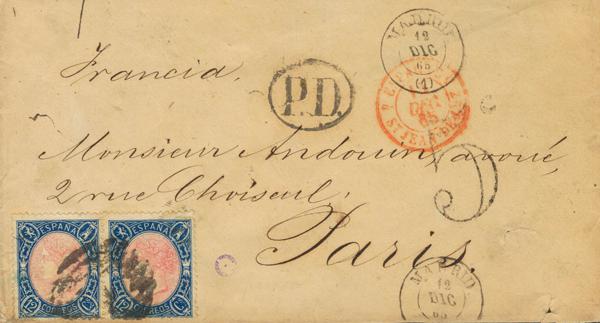 MADRID
12
DIC
65
(1)
Francia.
P.D.
ESPAGNE
DEC
65
ST JEAN-DE-LUZ
Monsieur Andouin, avoué,
2 rue Choiseul,
Paris.
1 ESPAÑA
12 CORREOS Cs
1 ESPAÑA
12 CORREOS Cs
MADRID
12
DIC
65